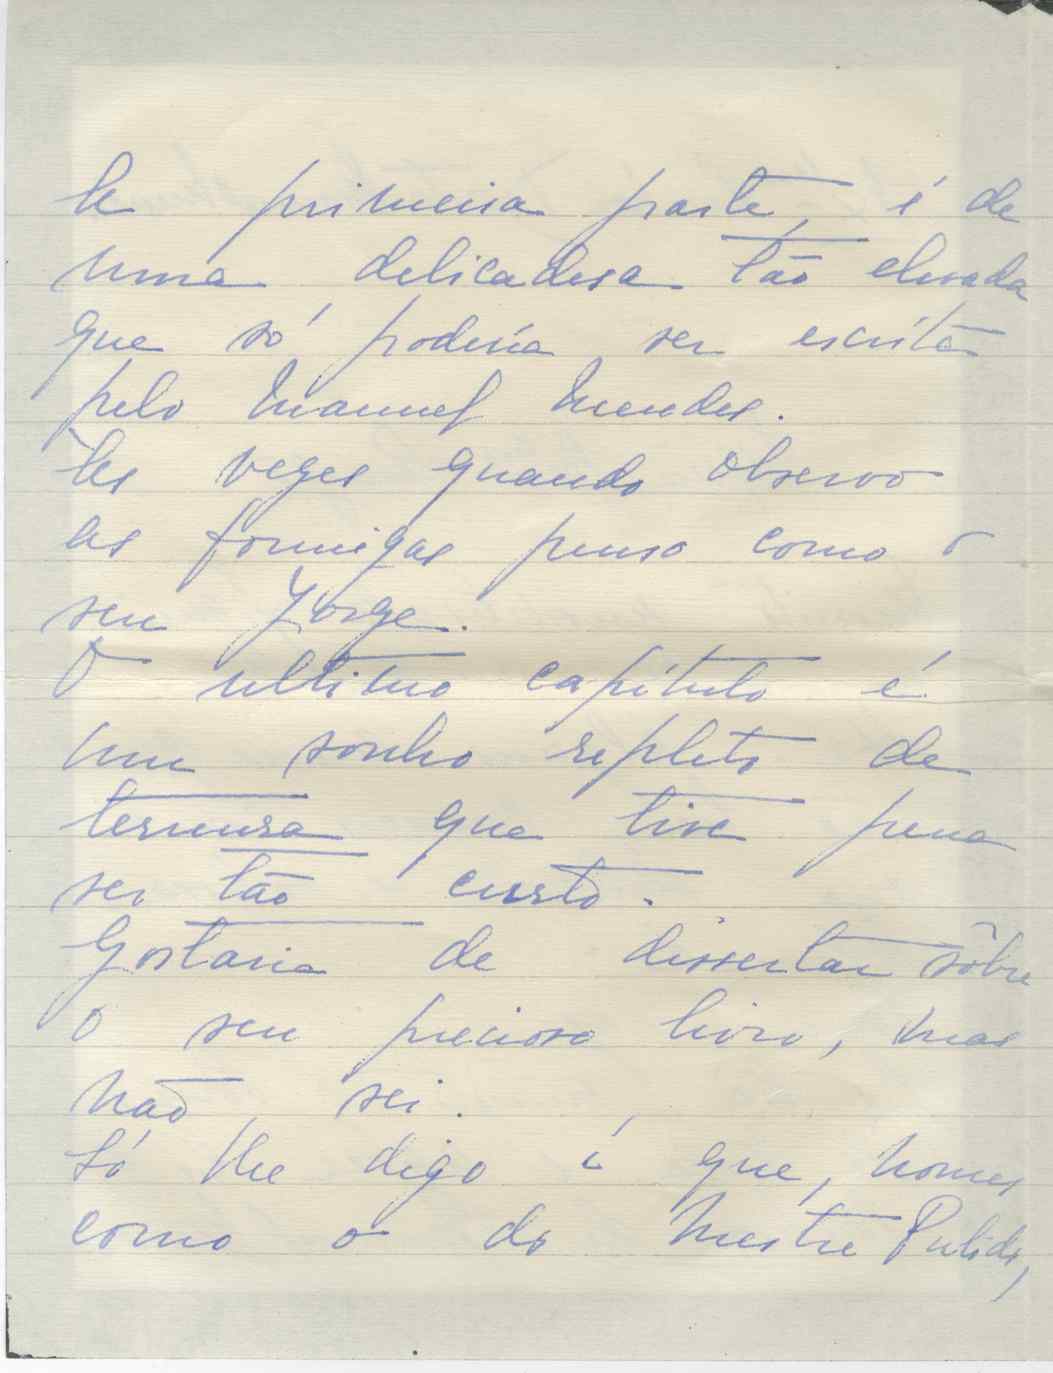 A primeira parte, é de
uma delicadesa tão elevada
que só podería ser escríta
pelo Manuel Mendes.
Às vezes quando observo
as formigas penso como o
seu Jorge.
O ultimo capítulo é
um sonho repleto de
ternura que tive pena
ser tão curto.
Gostaria de dissertar sôbre
o seu precioso livro, mas
não sei.
Só lhe digo é que, nomes
como o do Mestre Pulido,